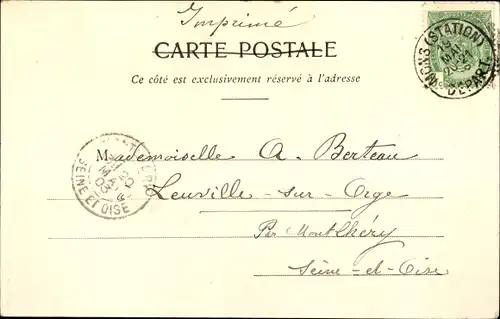 Imprimé
CARTE POSTALE
Ce côté est exclusivement réservé à l'adresse
MONS (STATION)
MAI
DEPART
Mademoiselle A. Berteau
Leuville-sur-Orge
Par Montlhéry
Seine-et-Oise
20
MAI
03
SEINE ET OISE